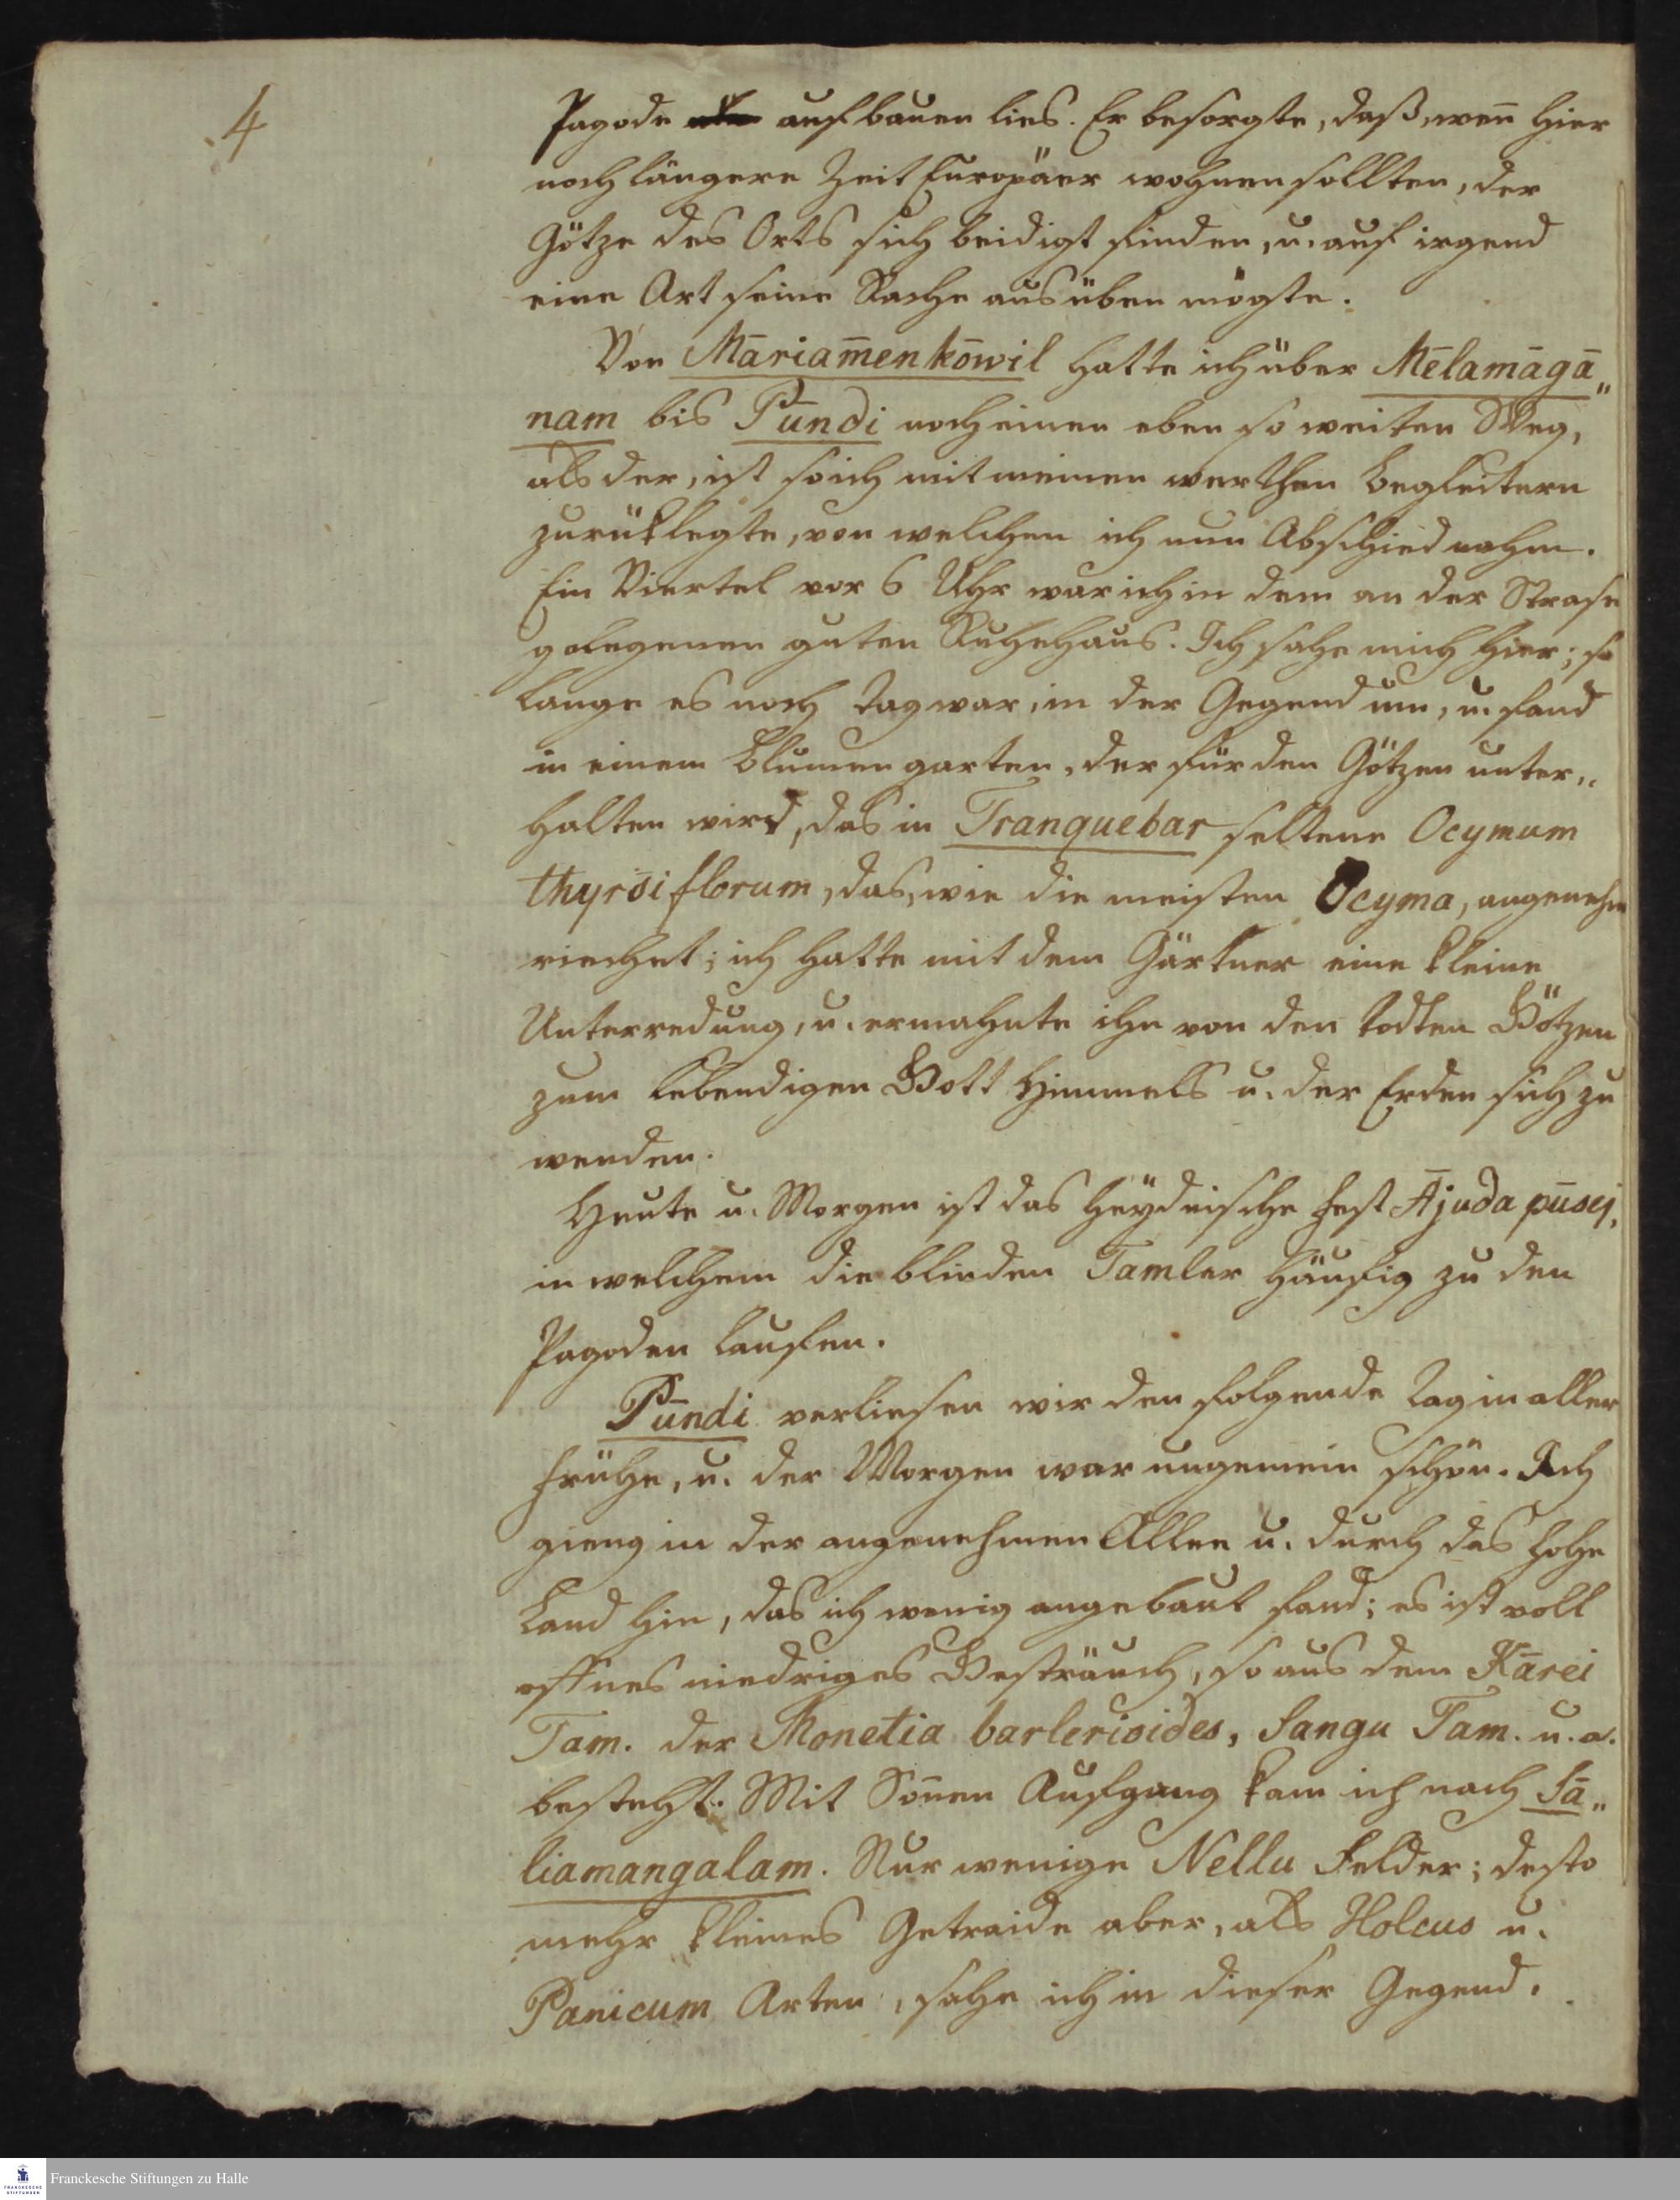 4
Pagode aufbauen lies. Er besorgte, daß, wen̄ hier
noch längere Zeit Europäer wohnen sollten, der
Götze des Orts sich beidigt finden, u. auf irgend
eine Art seine Rache ausüben mögte.
Von Māriam̄enkōwil hatte ich über Mēlamāgā„
nam bis Pūndi noch einen eben so weiten Weg,
als der, ist so ich mit meinen werthen Begleitern
zurüklegte, von welchen ich nun Abschied nahm.
Ein Viertel vor 6 Uhr war ich in dem an der Strase
gelegenen guten Ruhehaus. Ich sahe mich hier; so
lange es noch Tag war, in der Gegend um, u. fand
in einem Blumengarten, der für den Götzen unter„
halten wird, das in Tranquebar seltene Ocymum
thyrsiflorum, das, wie die meisten Ocyma, angenehm
riechet; ich hatte mit dem Gärtner eine kleine
Unterredung, u. ermahnte ihn von den todten Götzen
zum lebendigen Gott Himmels u. der Erden sich zu
wenden.
Heute u. Morgen ist das heÿdnische Fest Ājuda pūsej,
in welchem die blinden Tamler häufig zu den
Pagoden laufen.
Pūndi verliesen wir den folgende Tag in aller
Frühe, u. der Morgen war ungemein schön. Ich
gieng in der angenehmen Allee u. durch das hohe
Land hin, das ich wenig angebaut fand; es ist voll
offnes niedriges Gesträuch, so aus dem Kārei
Tam. der Monetia barlerioides, Sangu Tam. u. a.
besteht. Mit Son̄en Aufgang kam ich nach Sā„
liamangalam. Nur wenige Nellu Felder; desto
mehr kleines Getraide aber, als Holcus u.
Panicum Arten, sahe ich in dieser Gegend.
Franckesche Stiftungen zu Halle